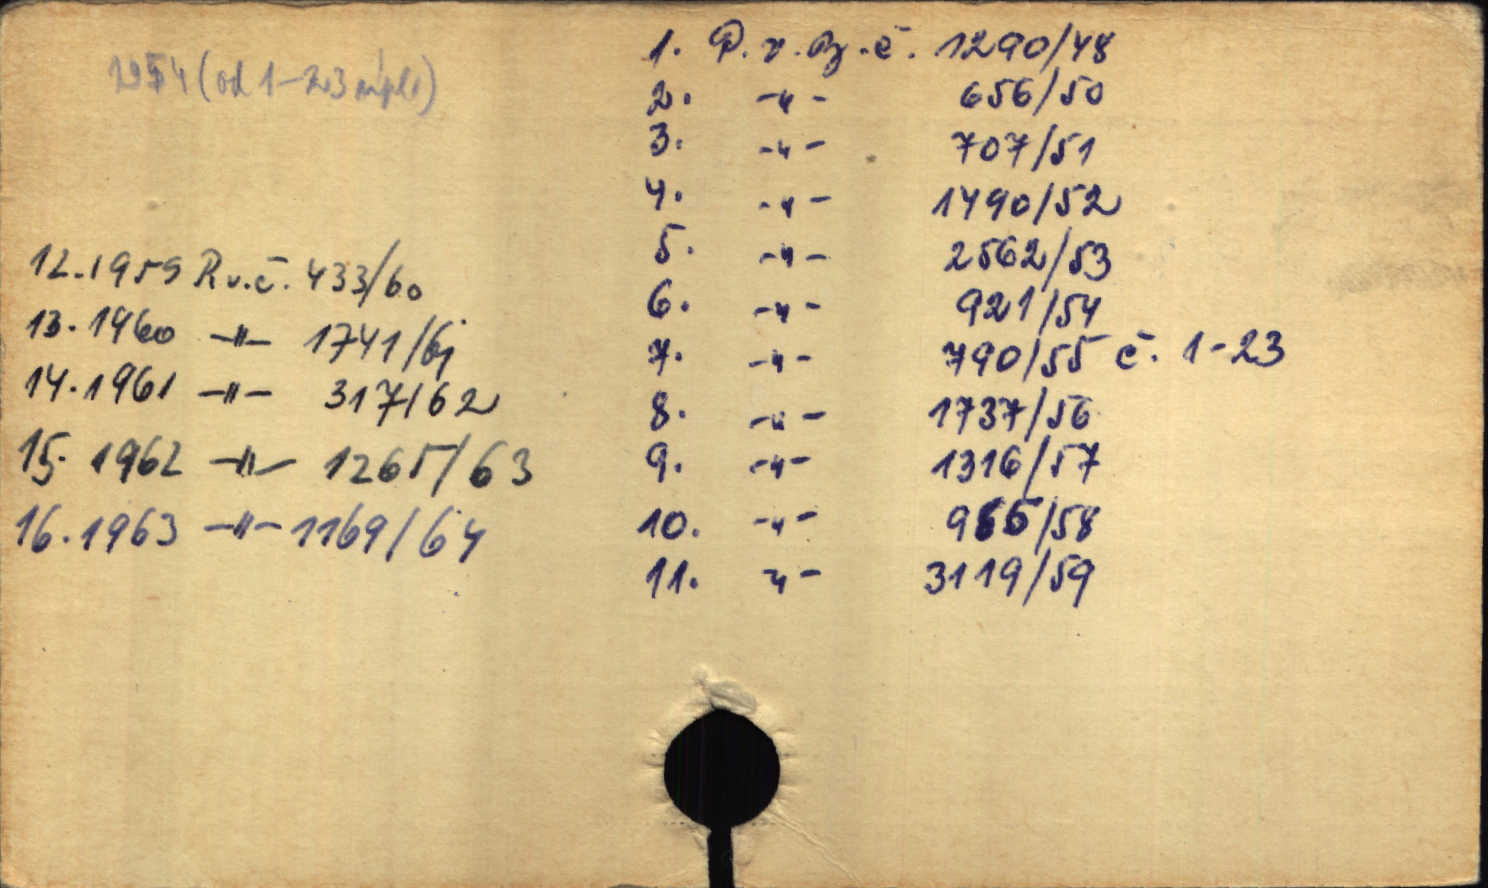 1954 (od 1-23 výpl.)
12. 1959 R v. č. 433/60
13. 1960 -"- 1741/61
14. 1961 -"- 317/62
15. 1962 -"- 1265/63
16. 1963 -"- 1169/64
1. P. v. č. 1290/48
2. -"- 656/50
3. -"- 707/51
4. -"- 1490/52
5. -"- 2562/53
6. -"- 921/54
7. -"- 790/55 č. 1-23
8. -"- 1737/56
9. -"- 1316/57
10. -"- /58
11. -"- 3119/59